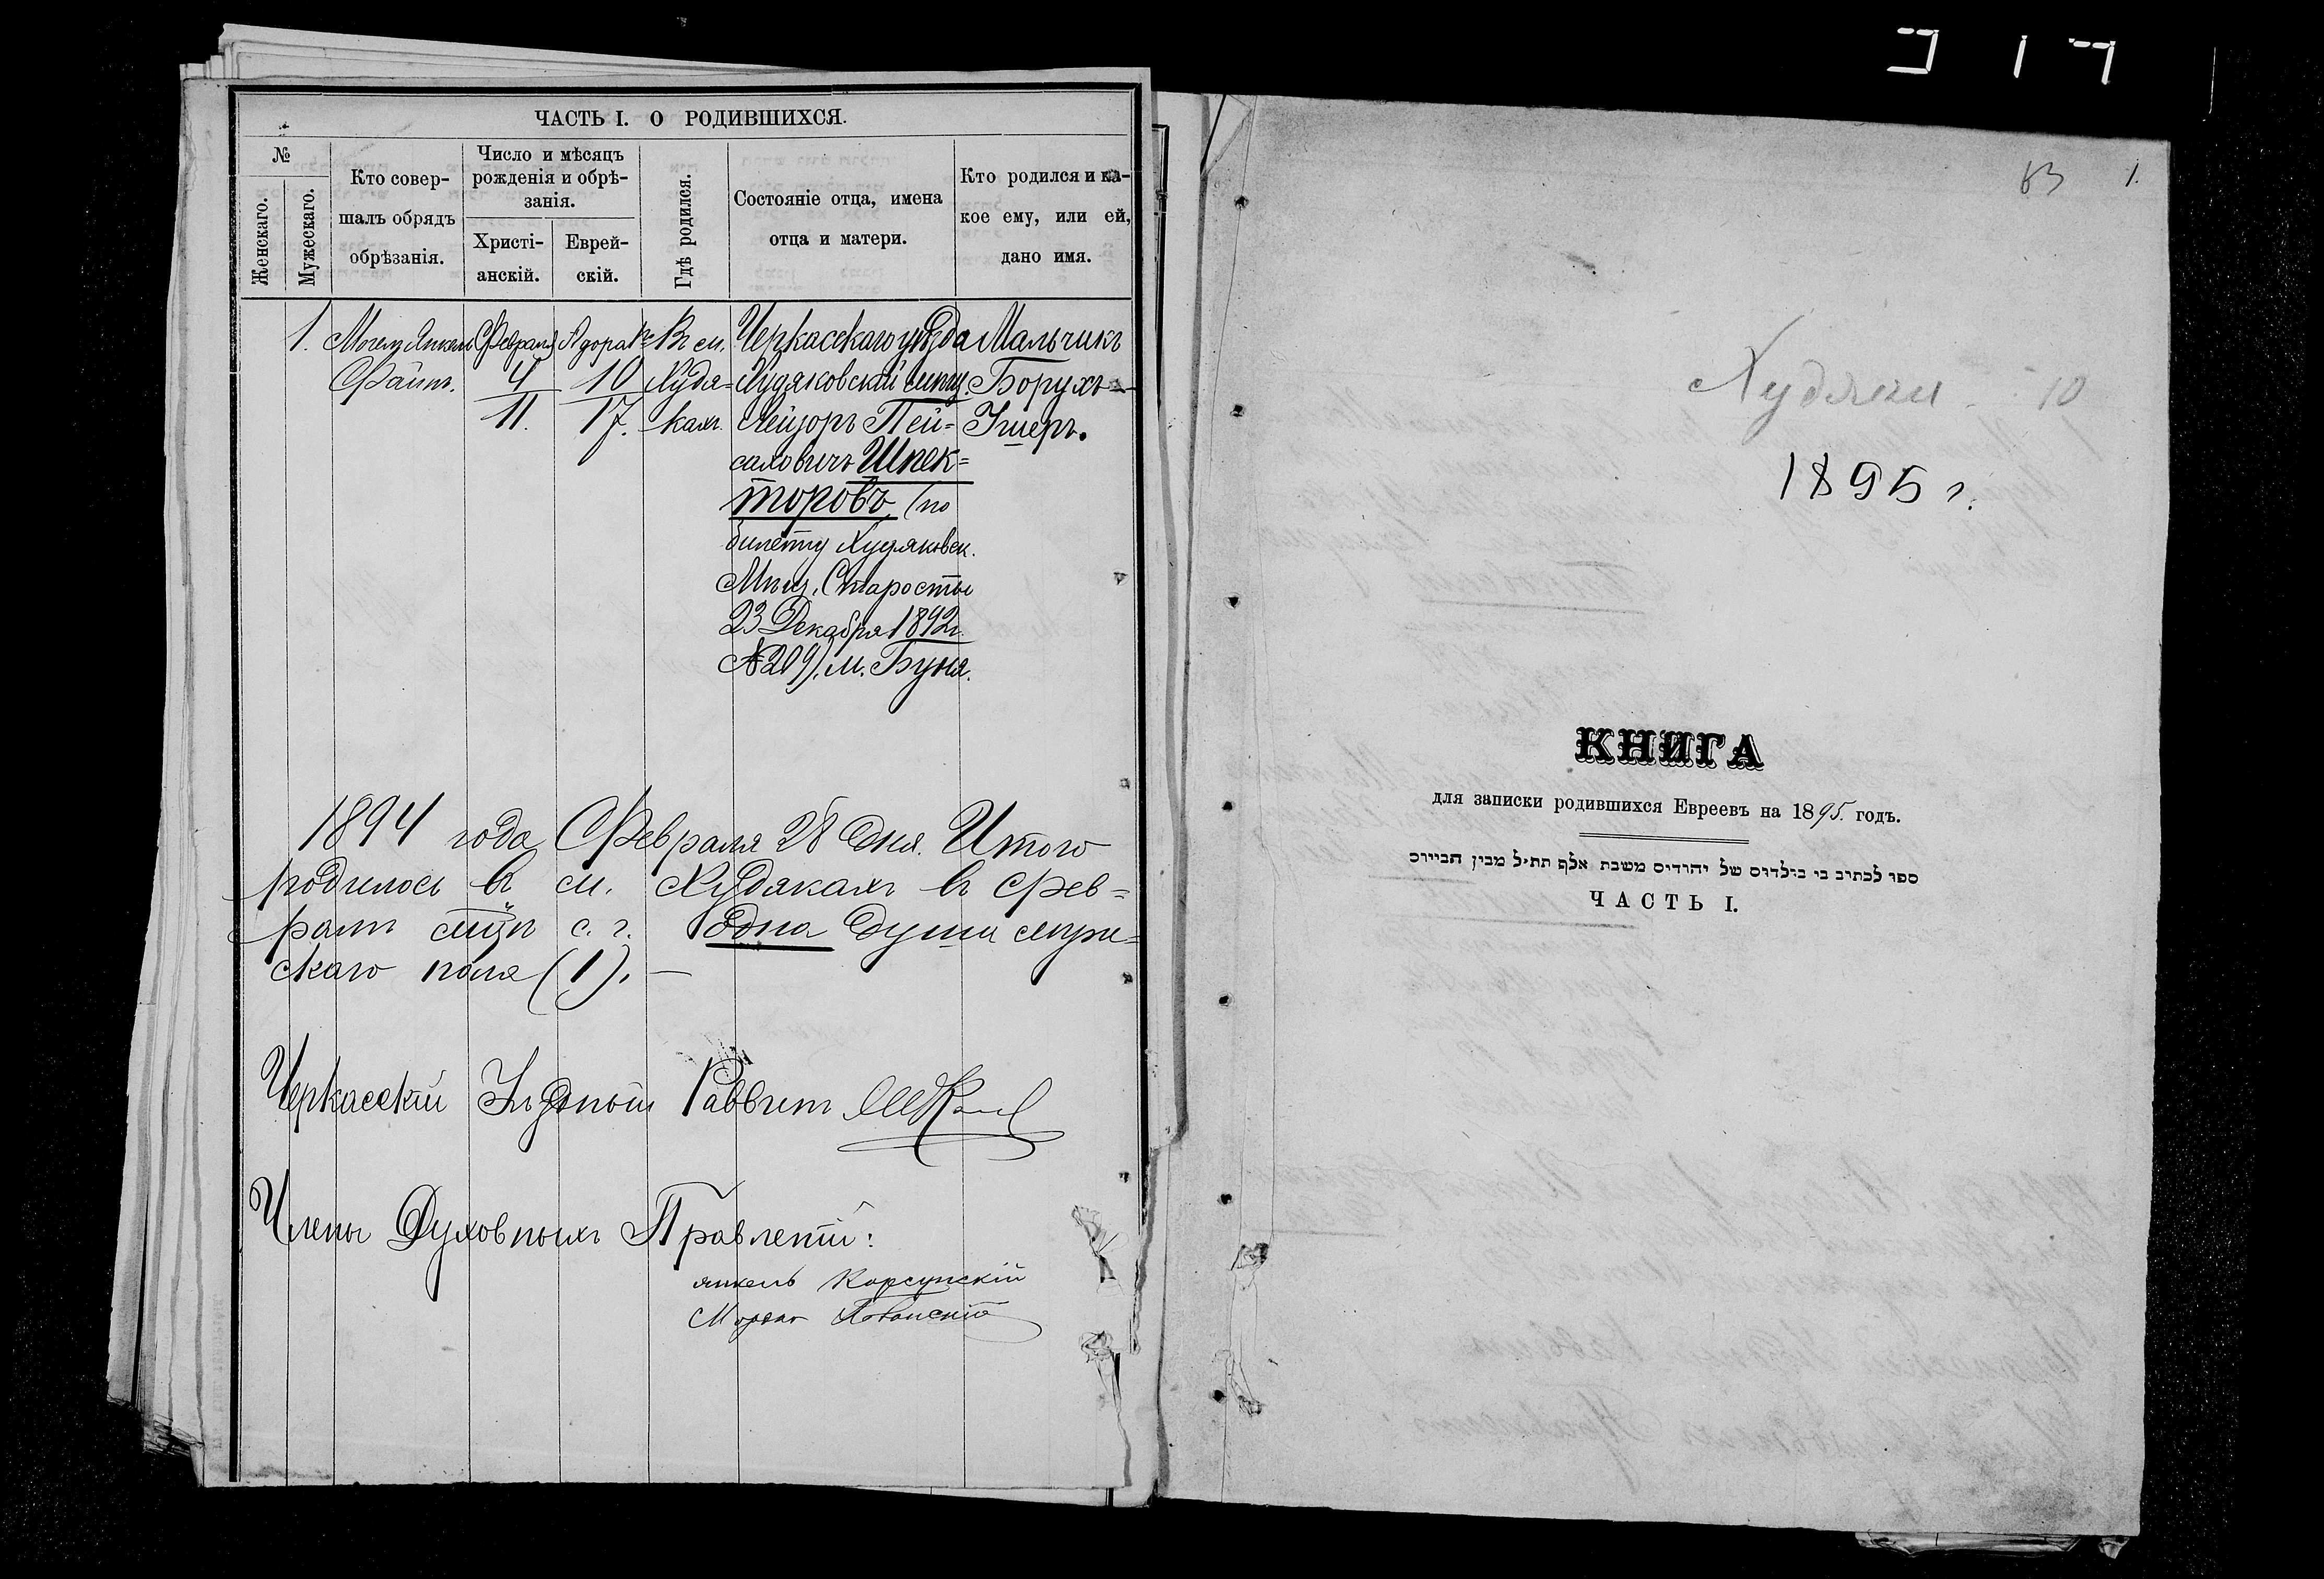 ЧАСТЬ I. О РОДИВШИХСЯ.
№
Женскаго.
Мужескаго.
Кто совер-
шалъ обрядъ
обрѣзанія.
Число и мѣсяцъ
рожденія и обрѣ-
занія.
Христі-
анскій.
Еврей-
скій.
Гдѣ родился.
Состояніе отца, имена
отца и матери.
Кто родился и ка-
кое ему, или ей,
дано имя.
1.
Могелъ Янкель
Файтъ.
Февраля
4
11.
Адора
10
17.
Въ м.
Худя=
кахъ.
Черкасскаго уѣзда
Худяковскій мѣщ.
Лейзоръ Пей=
саховичъ Шпек=
торовъ, (по
билету Худяковск.
Мѣщ. Старосты
23 Декабря 1892г.
№209), м. Буня.
Мальчикъ
Борухъ-
Ушеръ.
1894 года Февраля 28 дня. Итого
родилось въ м. Худякахъ въ Фев=
ралѣ мцѣ с. г. одна душа муже=
скаго пола (1). —
Черкасскій Уѣздный Раввинъ
Члены Духовныхъ Правленій:
Янкель Корсунскій
63 1.
Худяки 10
1895 г.
КНИГА
для записки родившихся Евреевъ на 1895. годъ.
ספר לכתיב בי בילדים של יהודים משבת אלף תת״ל מבין הביירוס
ЧАСТЬ I.